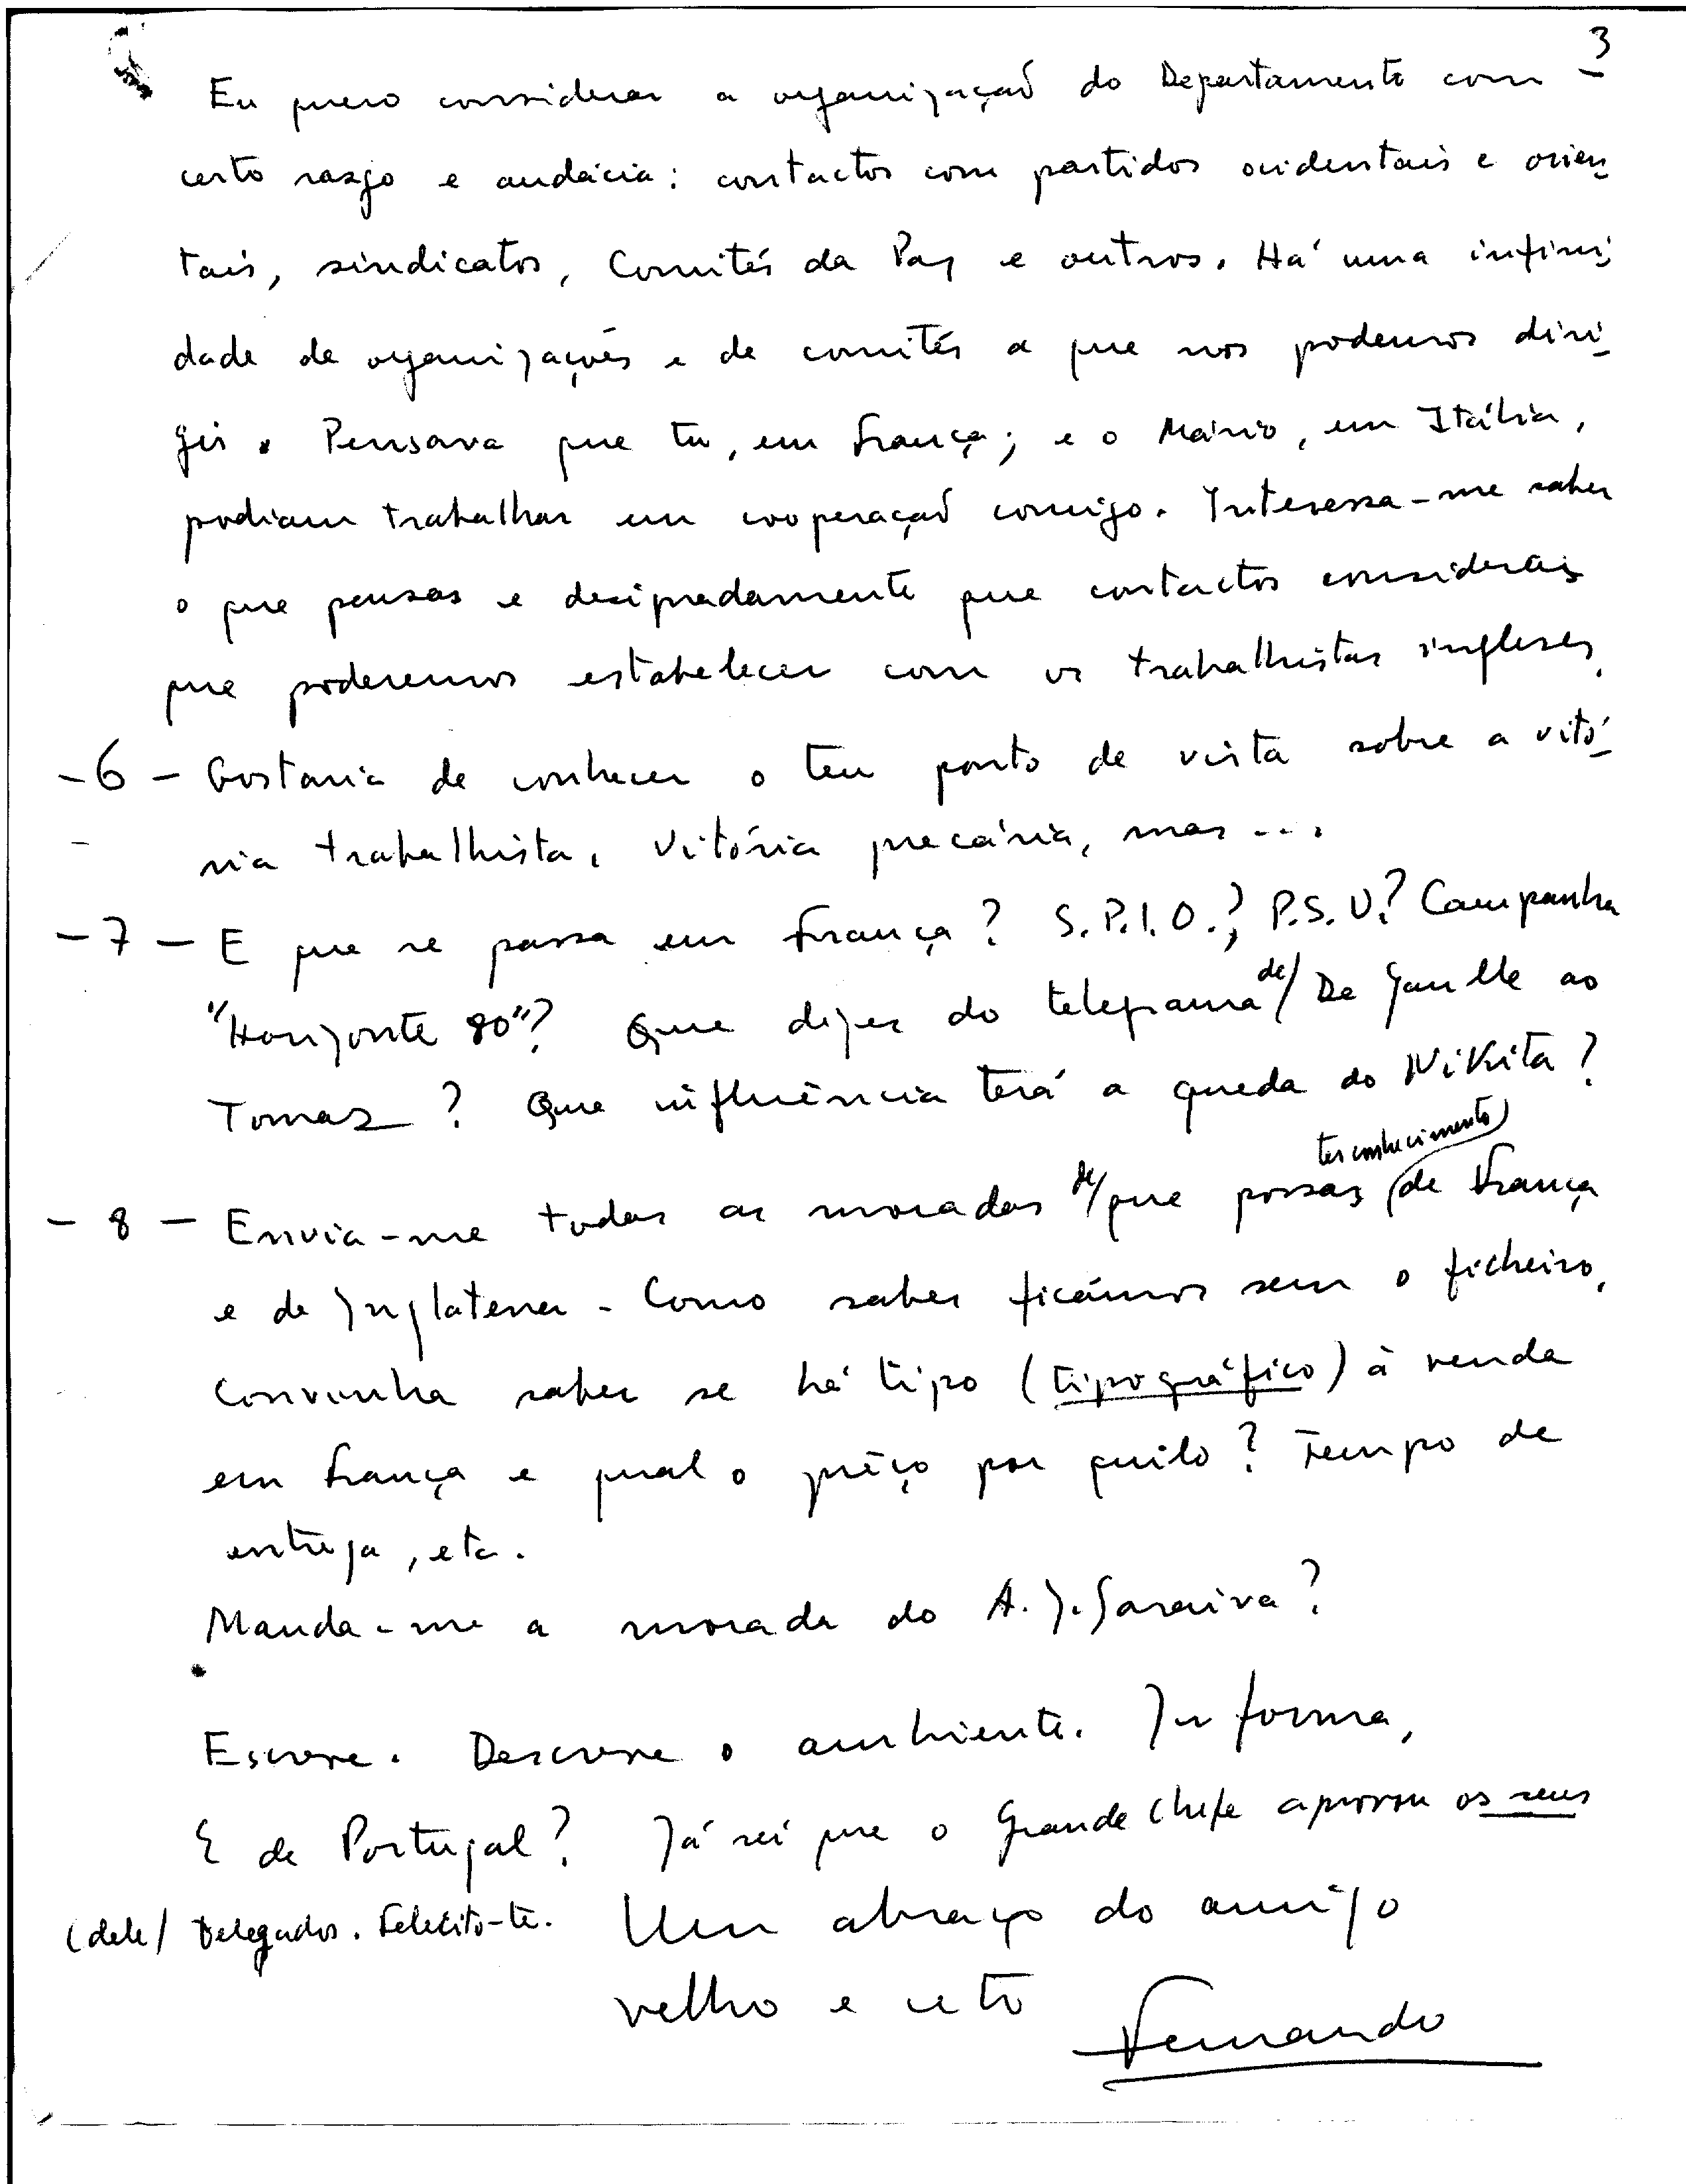 3
Eu quero considerar a organização do Departamento com
certo rasgo e audácia: contactos com partidos ocidentais e orien-
tais, sindicatos, Comités da Paz e outros. Há uma infini-
dade de organizações e de comités a que nos podemos diri-
gir. Pensava que tu, em França; e o Mário, em Itália,
podiam trabalhar em cooperação comigo. Interessa-me saber
o que pensas e designadamente que contactos consideras
que poderemos estabelecer com os trabalhistas ingleses.
- 6 - Gostaria de conhecer o teu ponto de vista sobre a vitó-
ria trabalhista. Vitória precária, mas ....
- 7 - E que se passa em França? S.P.I.O.?, P.S.U.? Campanha
"Horizonte 80"? Que dizer do telegrama de/ De Gaulle ao
Tomaz? Que influência terá a queda do Nikita?
ter conhecimento
- 8 - Envia-me todas as moradas de/ que possas (de França
e de Inglaterra - Como sabes ficámos sem o ficheiro.
Convinha saber se há tipo (tipográfico) à venda
em França e qual o prêço por quilo? Tempo de
entrega, etc.
Manda-me a morada do A. J. Saraiva?
Escreve. Descreve o ambiente. Informa,
E de Portugal? Já sei que o Grande Chefe aprovou os seus
(dele) Delegados. Felicito-te. Um abraço do amigo
velho e certo
Fernando